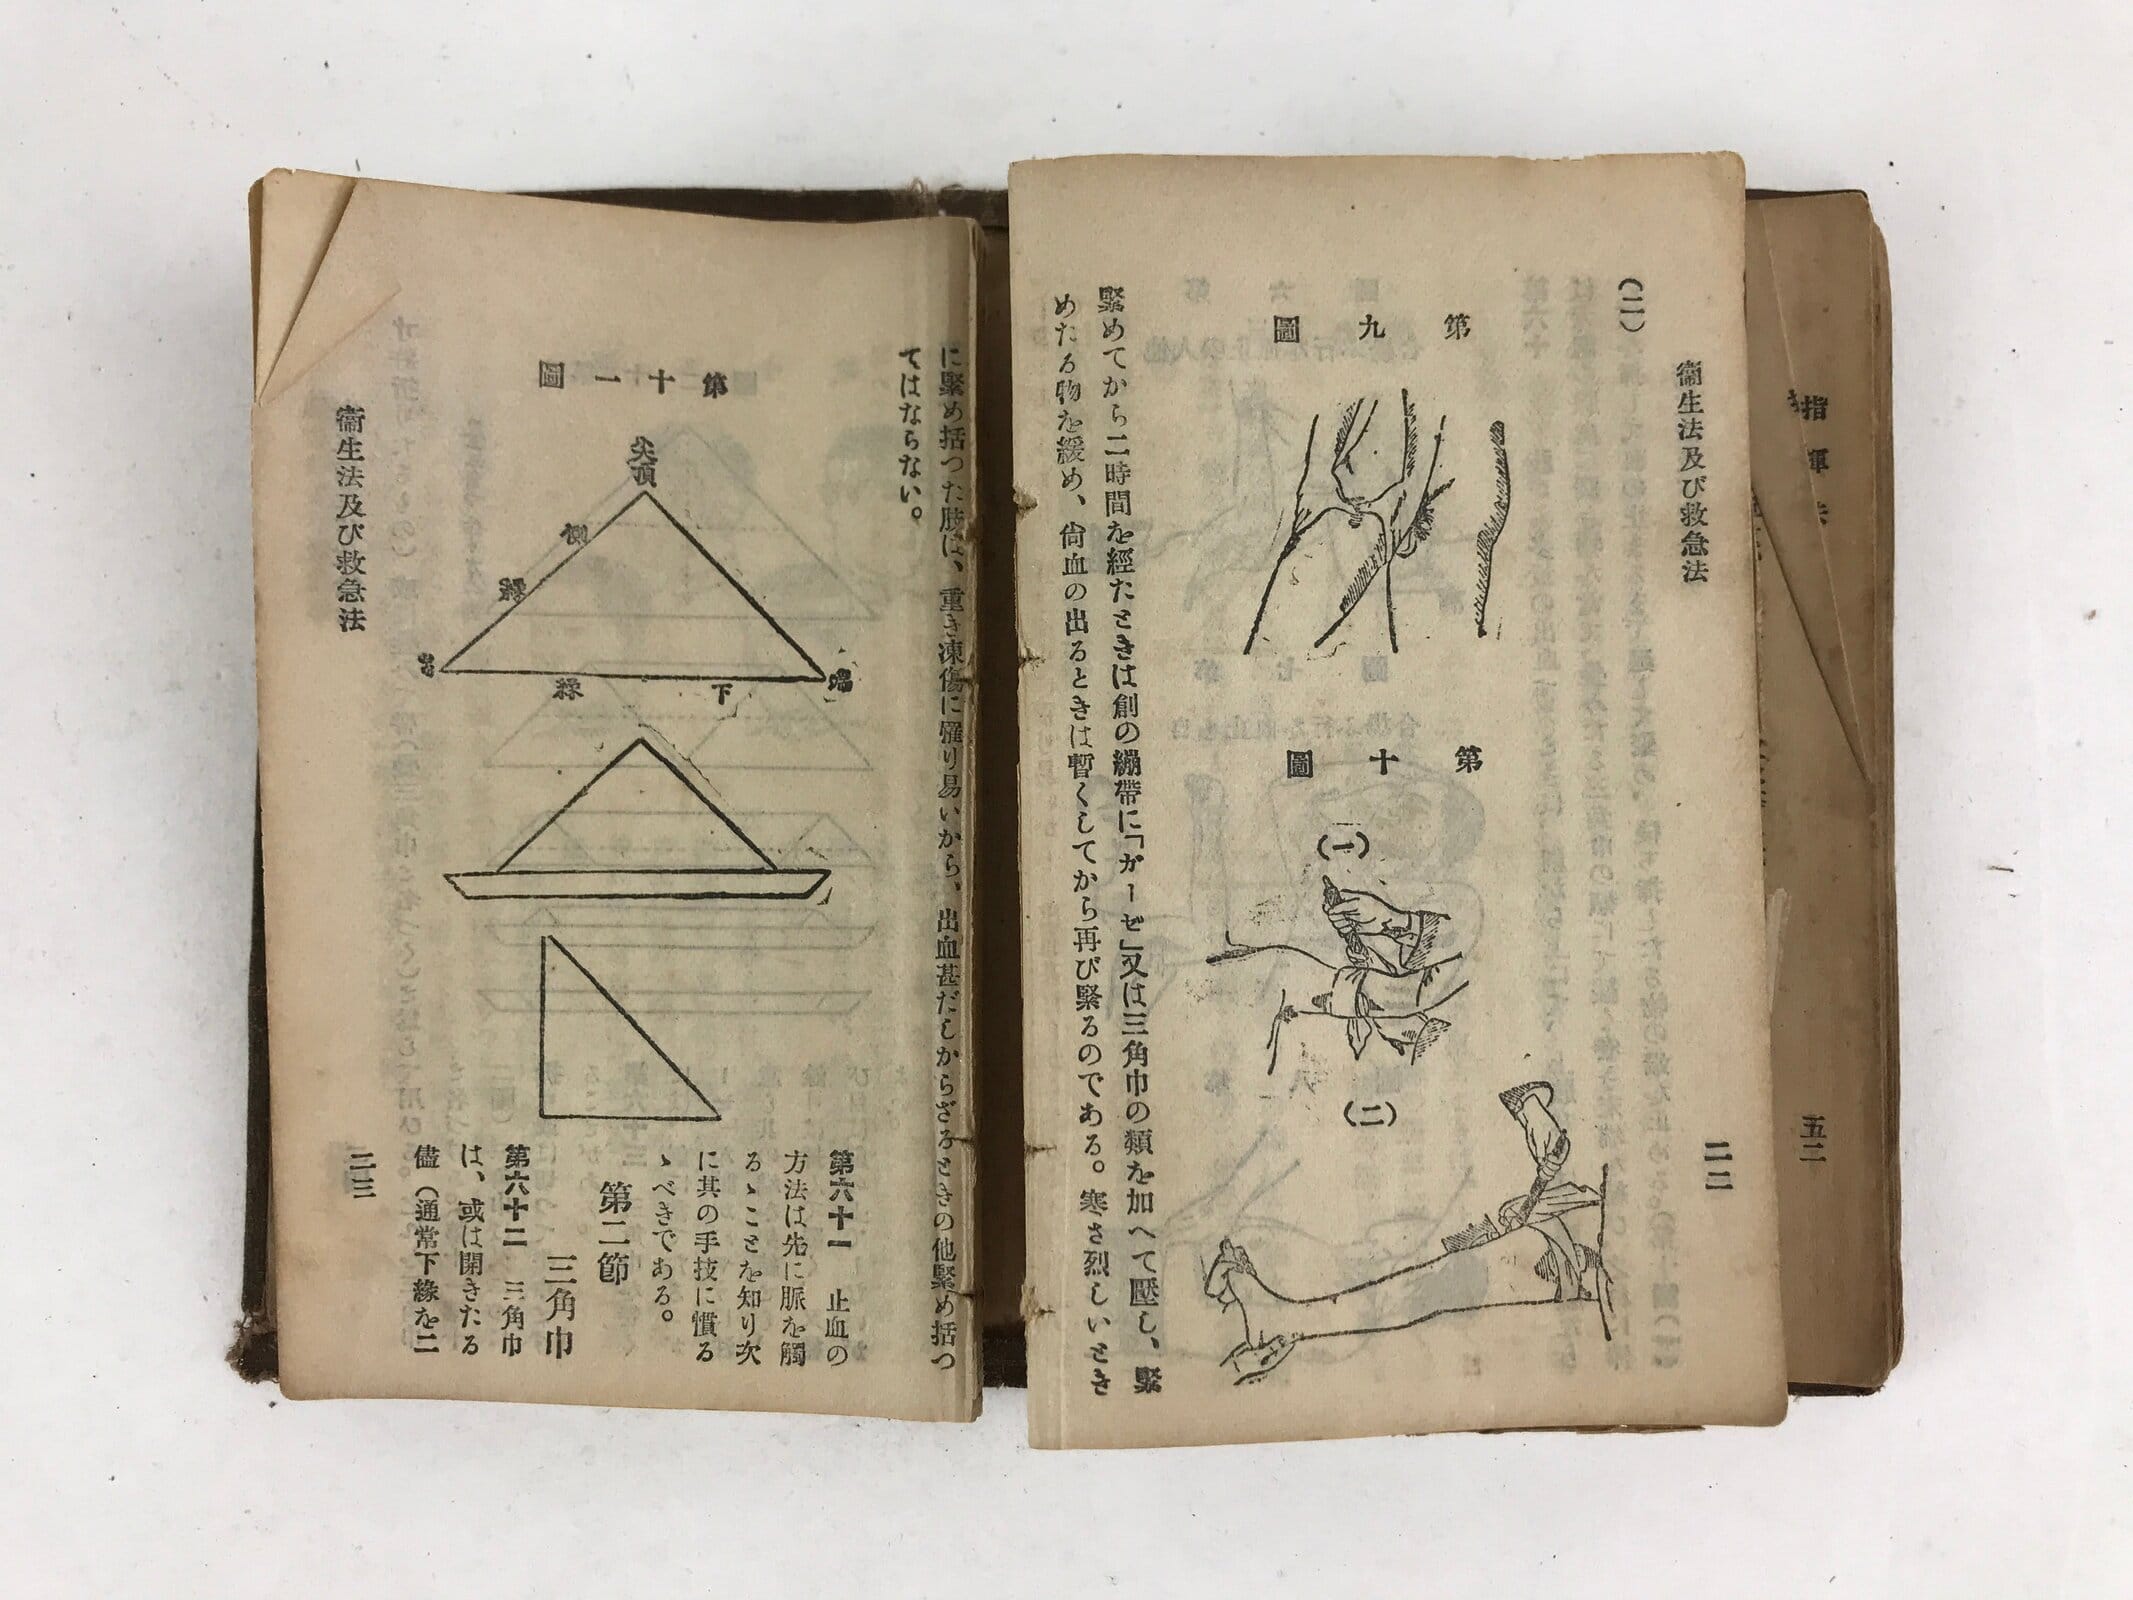 (二)
衞生法及び救急法
二二
第九圖
第十圖
(一)
(二)
緊めてから二時間を經たときは創の繃帶に「ガーゼ」又は三角巾の類を加へて壓し、緊
めたる物を緩め、尙血の出るときは暫くしてから再び緊るのである。寒さ烈しいとき
に緊め括つた肢は、重き凍傷に罹り易いから、出血甚だしからざるときの他緊め括つ
てはならない。
第十一圖
尖頂
側
緣
端
下
緣
第六十一 止血の
方法は先に脈を觸
るゝことを知り次
に其の手技に慣る
ゝべきである。
第二節
三角巾
第六十二 三角巾
は、或は開きたる
儘（通常下緣を二
衞生法及び救急法
二三
指揮法
五二